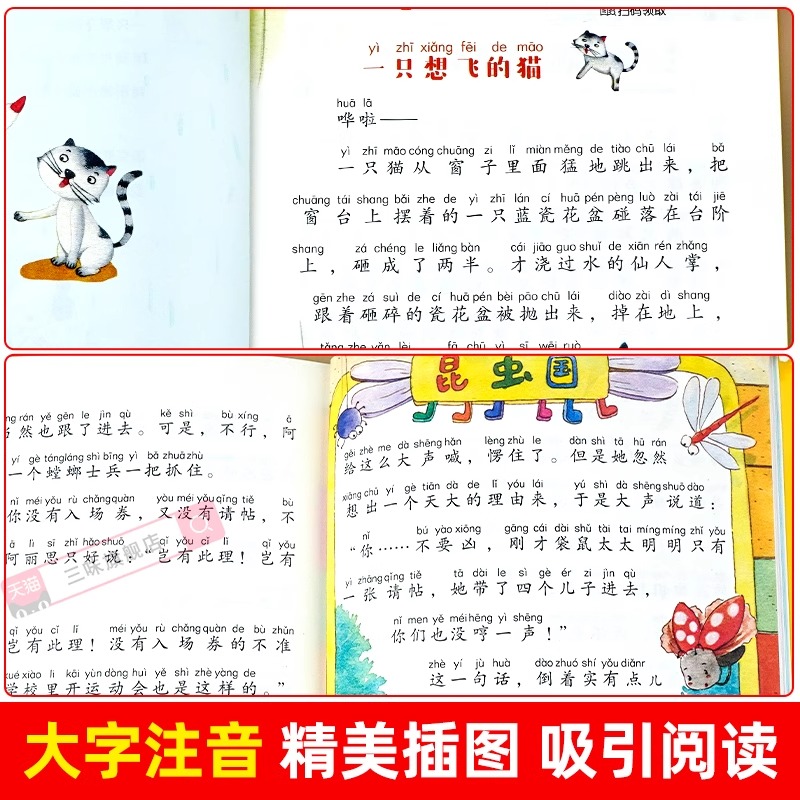 yì zhī xiǎng fēi de māo
一只想飞的猫
huā lā
哗啦——
yì zhī māo cóng chuāng zi lǐ miàn měng de tiào chū lái bǎ
一只猫从窗子里面猛地跳出来，把
chuāng tái shang bǎi zhe de yì zhī lán cí huā pén pèng luò zài tái jiē
窗台上摆着的一只蓝瓷花盆碰落在台阶
shang zá chéng le liǎng bàn cái jiāo guo shuǐ de xiān rén zhǎng
上，砸成了两半。才浇过水的仙人掌，
gēn zhe zá suì de cí huā pén bèi pāo chū lái diào zài dì shang
跟着砸碎的瓷花盆被抛出来，掉在地上，
ng rán yě gēn le jìn qù kě shì bù xíng ā
当然也跟了进去。可是，不行，阿
yí gè tángláng shì bīng yì bǎ zhuā zhù
一个螳螂士兵一把抓住。
nǐ méi yǒu rù chǎng quàn yòu méi yǒu qǐng tiě bù
你没有入场券，又没有请帖，不
ā lì sī zhǐ hǎo shuō qǐ yǒu cǐ lǐ qǐ yǒu
阿丽思只好说：“岂有此理！岂有
qǐ yǒu cǐ lǐ méi yǒu rù chǎng quàn de bù zhǔn
岂有此理！没有入场券的不准
xué xiào lǐ kāi yùn dòng huì yě shì zhè yàng de
学校里开运动会也是这样的。”
昆虫国
gěi zhè me dà shēng hǎn lèng zhù le dàn shì tā hū rán
给这么大声喊，愣住了。但是她忽然
xiǎng chū yí gè tiān dà de lǐ yóu lái yú shì dà shēng shuō dào
想出一个天大的理由来，于是大声说道：
nǐ bú yào xiōng gāng cái dài shǔ tài tai míng míng zhǐ yǒu
“你……不要凶，刚才袋鼠太太明明只有
yì zhāng qǐng tiě tā dài le sì gè ér zi jìn qù
一张请帖，她带了四个儿子进去，
nǐ men yě méi hēng yì shēng
你们也没哼一声！”
zhè yí jù huà dào zhuó shí yǒu diǎnr
这一句话，倒着实有点儿
天猫
三味旗舰店
大字注音 精美插图 吸引阅读